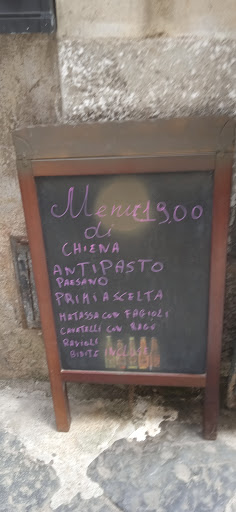 Menu €19,00
di
CHIENA
ANTIPASTO
PAESANO
PRIMI A SCELTA
MATASSA CON FAGIOLI
CAVATELLI CON RAGU
RAVIOLI
BIBITE INCLUSE